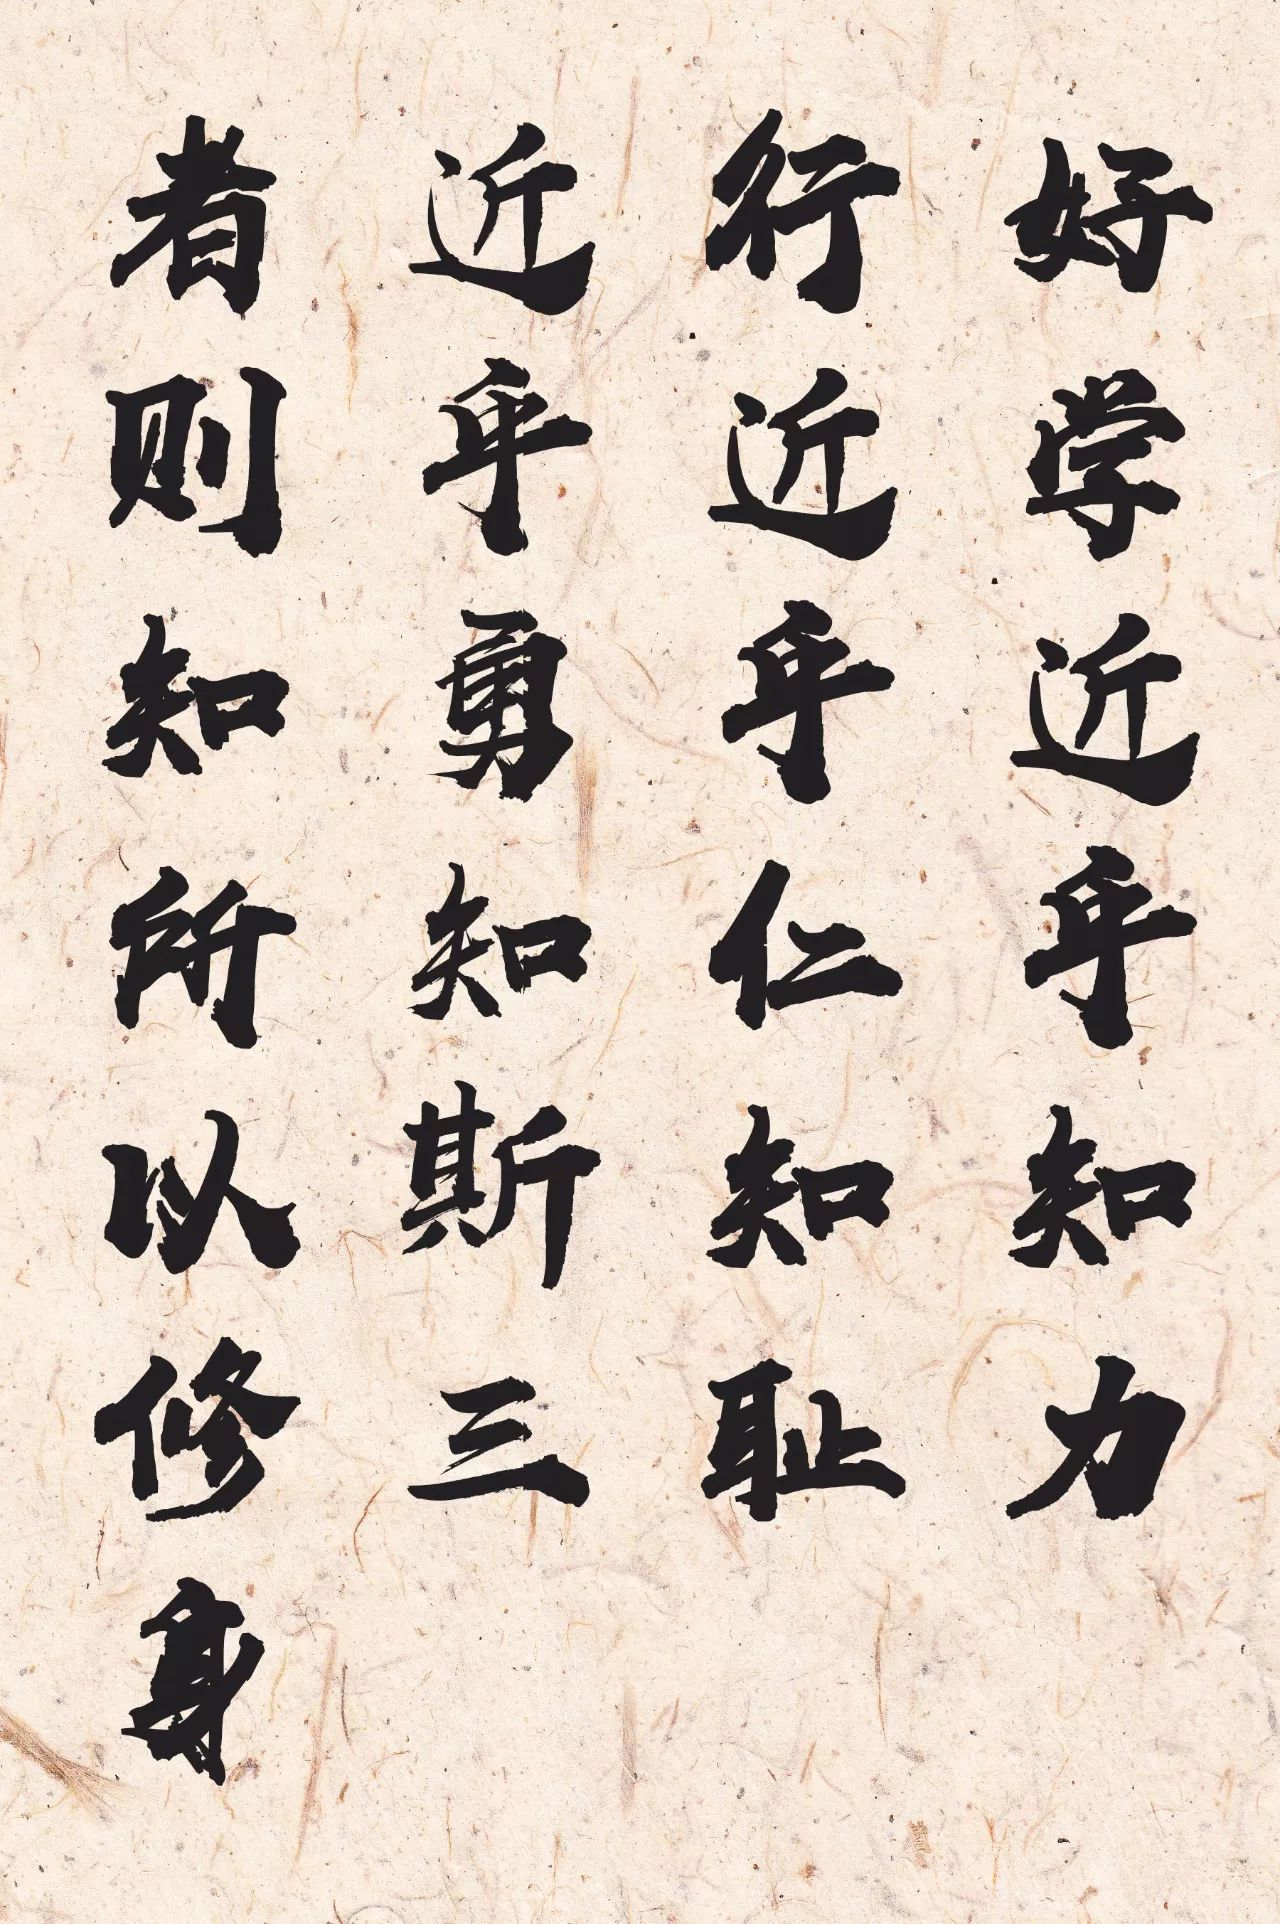 好学近乎知力
行近乎仁知耻
近乎勇知斯三
者则知所以修身